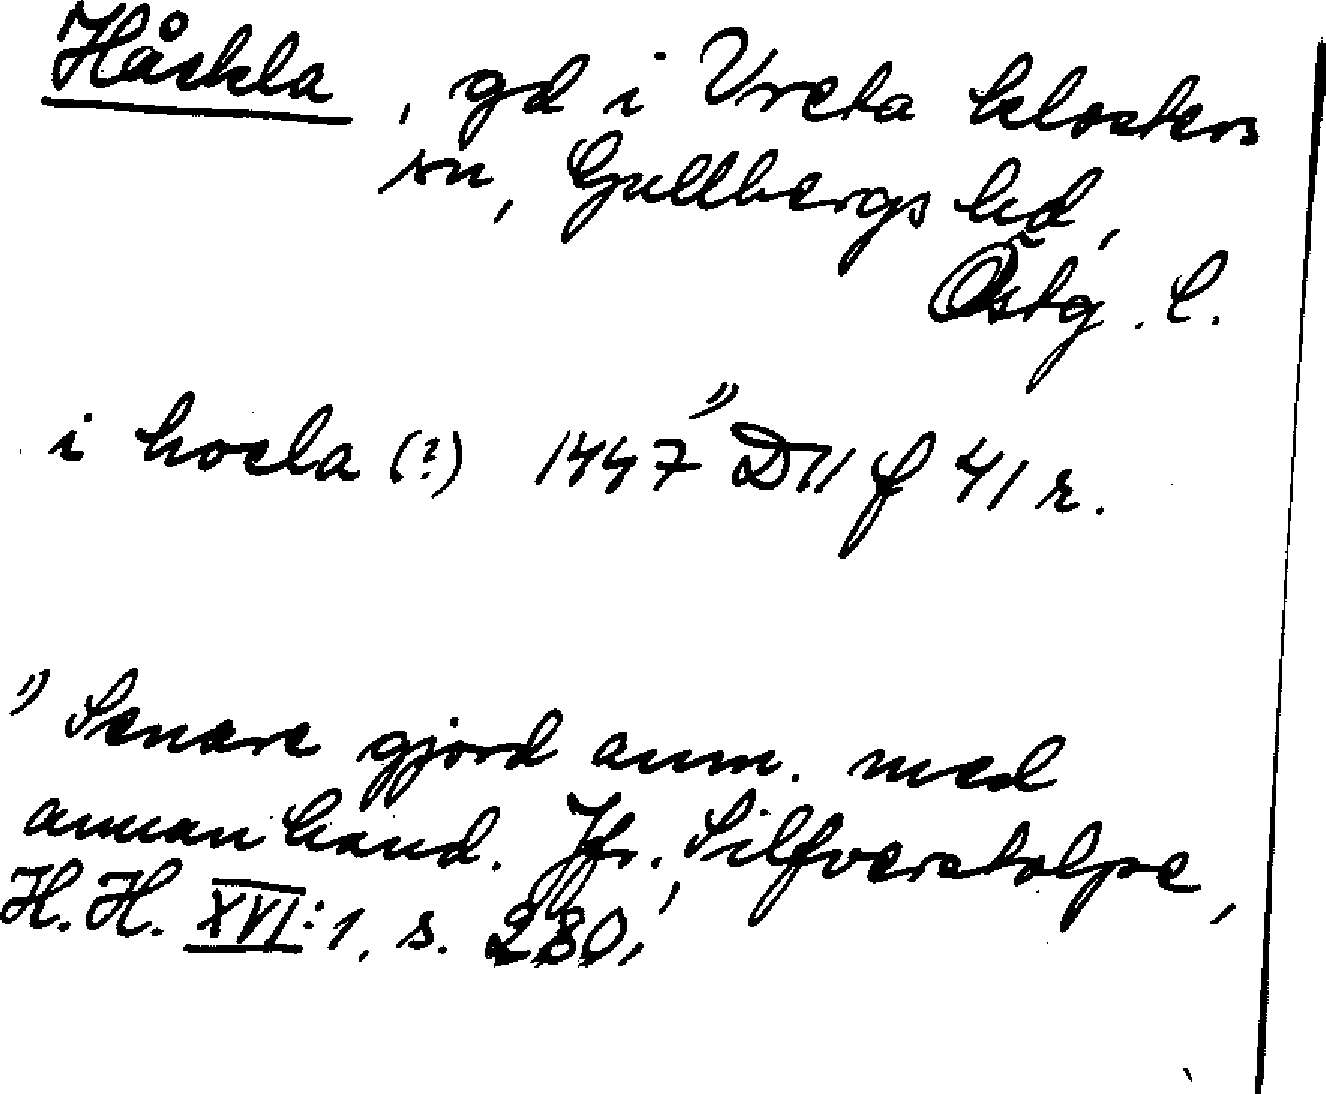 Håckla, gd i Vreta klosters
sn, Gullbergs hd,
Östg. l.
i hocla (?) 1447 ¹⁾ D11 f 41 r.
¹⁾ Senare gjord anm. med
annan hand. Jfr. Silfverstolpe,
H. H. XVI:1, s. 280.